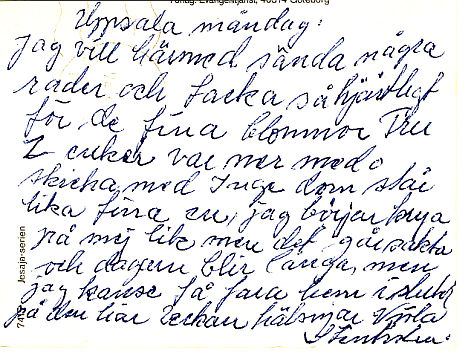 Förlag: Evangelietjänst, 40314 Göteborg
Uppsala måndag:
Jag vill härmed sända några
rader och tacka så hjärtligt
för de fina blommor Tru
Z cuker var mer med o
skicka med Inge dom står
lika fina en, jag börjar krya
på mej lite men det går sakta
och dagen blir långa, men
jag kanse få fara hem i slutet
på den här veckan hälsnjar
Stenholm:
Jesaja-serien